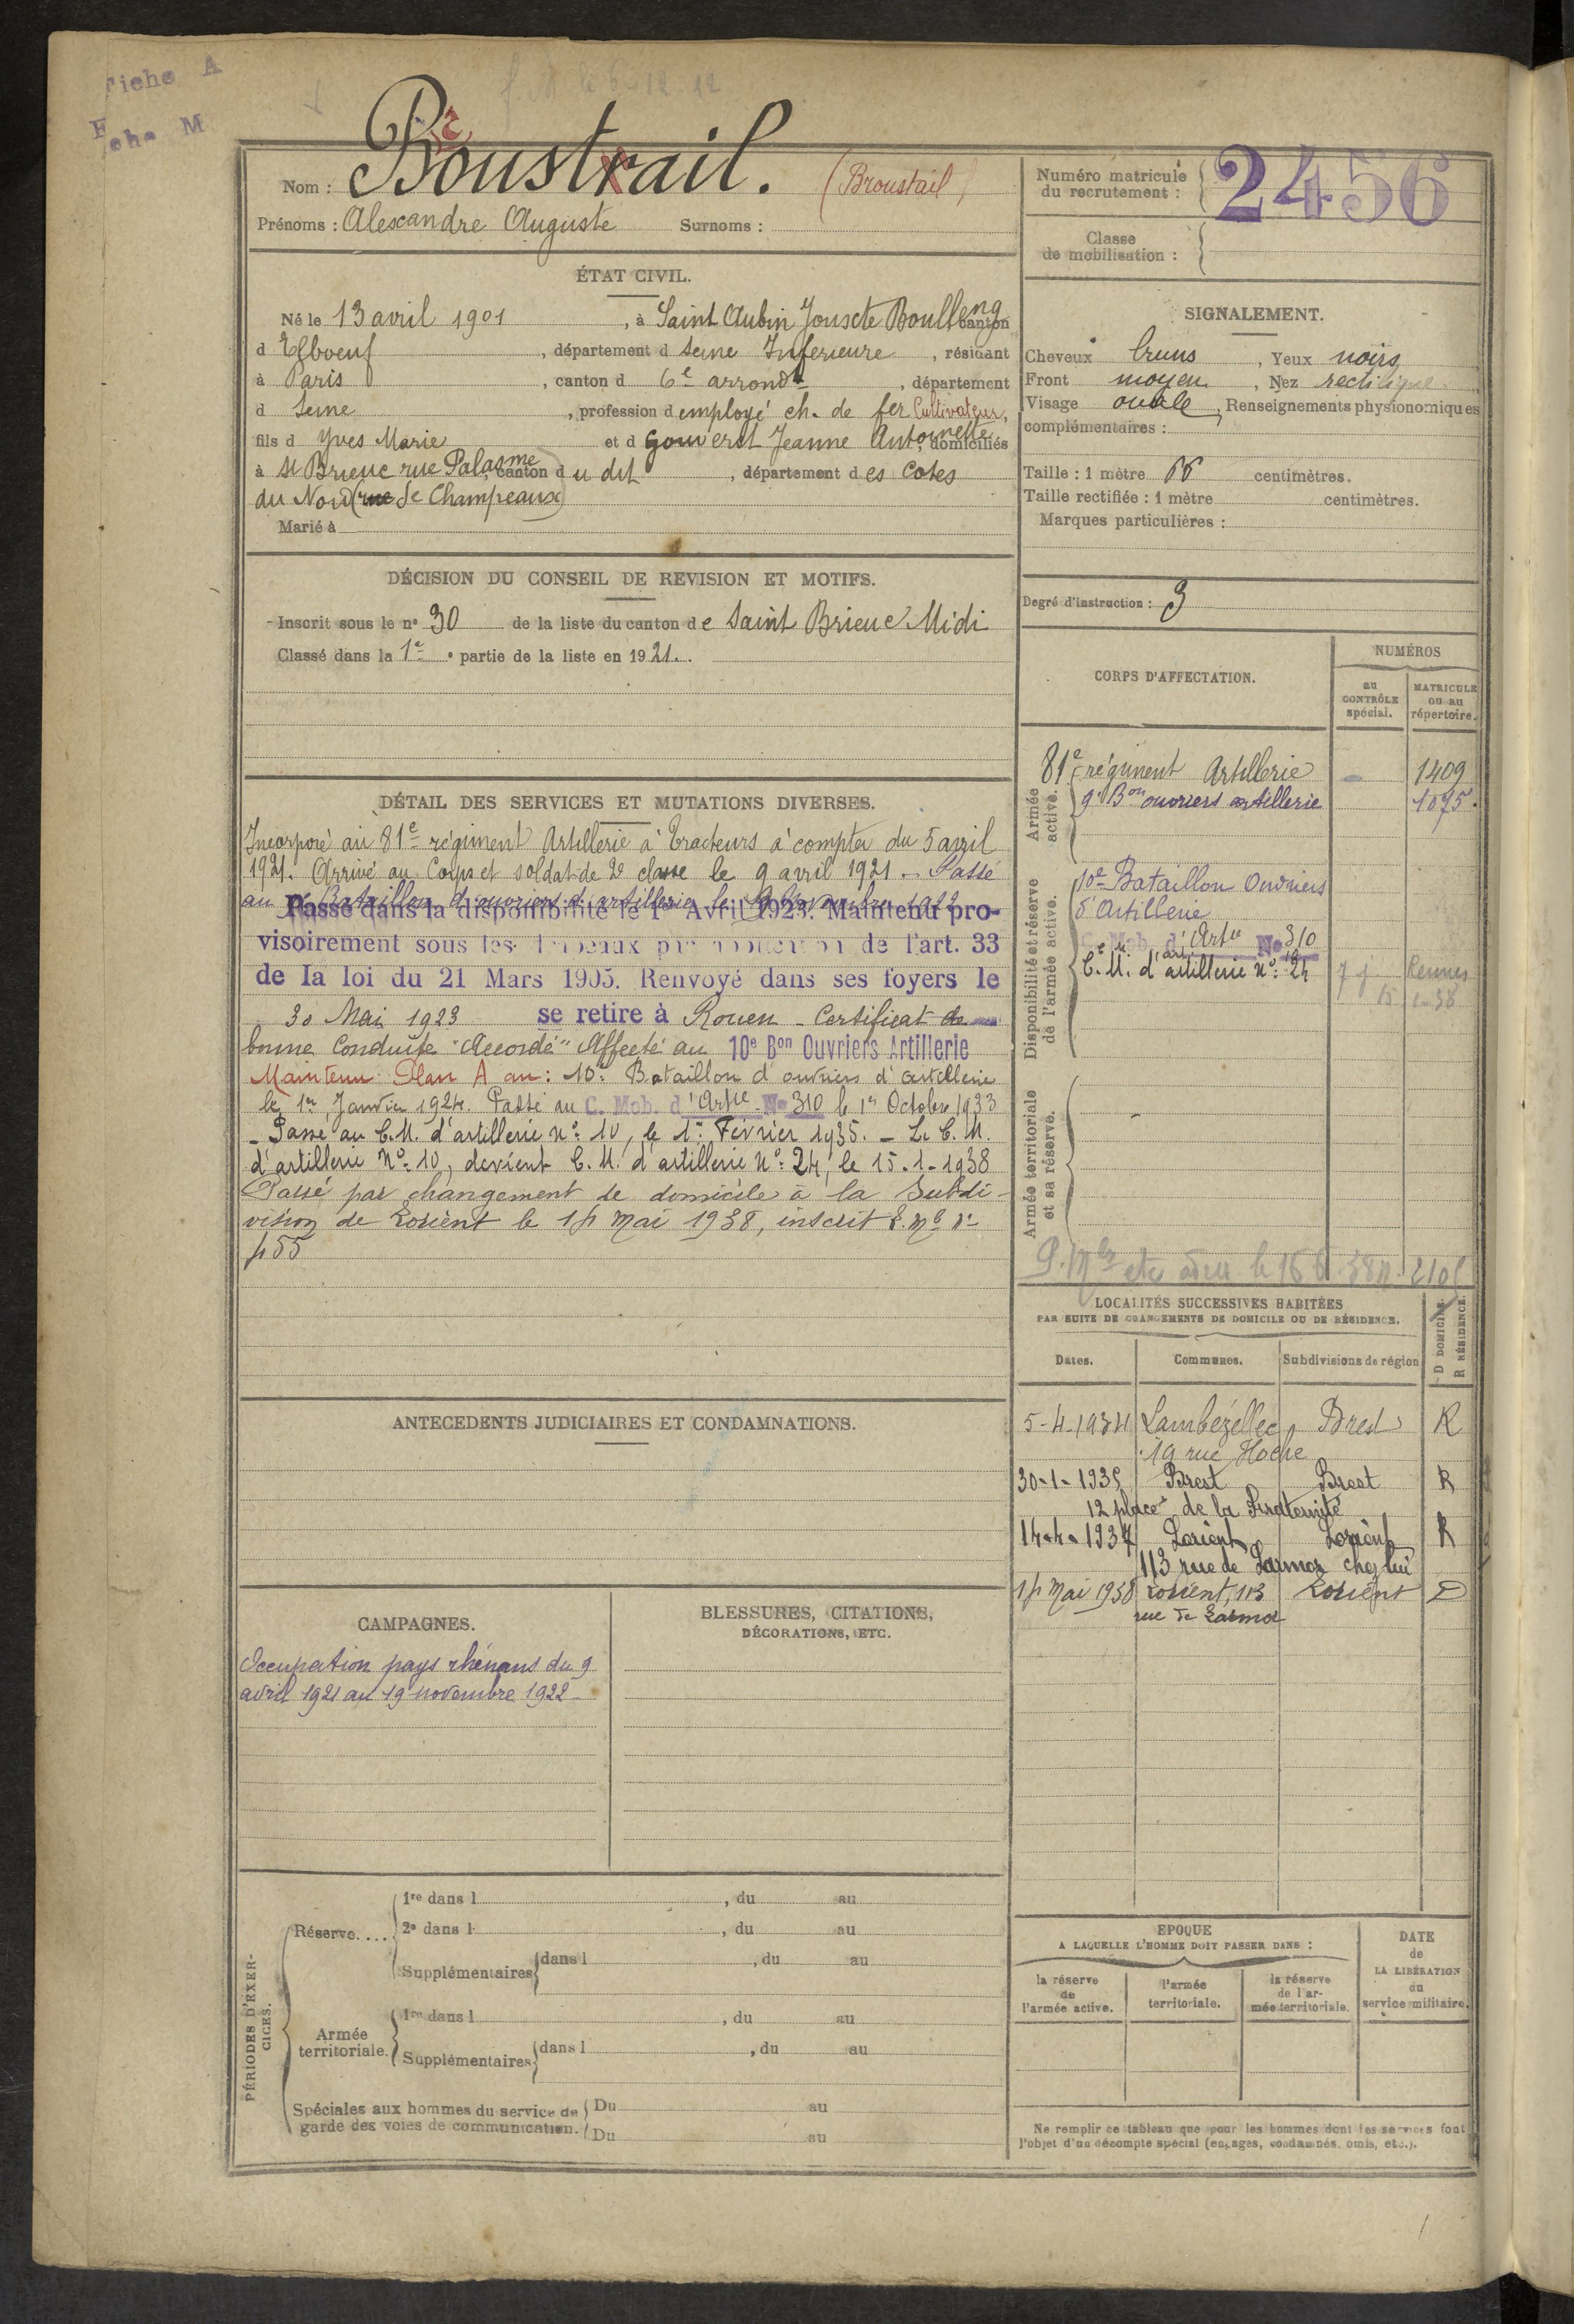 Fiche A
F che M
f. M le 6-12-12
Nom : Boustrail. (Broustail)
r
Prénoms : Alexandre Auguste Surnoms :
Numéro matricule
du recrutement : 2456
Classe
de mobilisation :
ÉTAT CIVIL.
Né le 13 avril 1901, à Saint Aubin Jouxte Boulleng canton
d Elboeuf, département d Seine Inferieure, résidant
à Paris, canton d 6e arrondt, département
d Seine, profession d employé ch. de fer Cultivateur,
fils d Yves Marie et d Gouverst Jeanne Antoinette, domiciliés
à St Brieuc rue Palasme, canton du dit, département des Cotes
du Nord (rue de Champeaux)
Marié à
SIGNALEMENT.
Cheveux bruns, Yeux noirs
Front moyen, Nez rectiligne
Visage ovale, Renseignements physionomiques
complémentaires :
Taille : 1 mètre 66 centimètres.
Taille rectifiée : 1 mètre centimètres.
Marques particulières :
DÉCISION DU CONSEIL DE REVISION ET MOTIFS.
Inscrit sous le n° 30 de la liste du canton de Saint Brieuc Midi
Classé dans la 1e partie de la liste en 1921.
Degré d'instruction : 3
CORPS D'AFFECTATION.
NUMÉROS
au CONTRÔLE spécial.
MATRICULE ou au répertoire.
Armée active.
81e régiment Artillerie - 1409
9e Bon ouvriers artillerie 1075.
Disponibilité et réserve de l'armée active.
10e Bataillon Ouvriers
d'Artillerie
C. Mob. d'Artie No 310
C. M. d'artillerie n°: 24 7 j Rennes
15 1-38
Armée territoriale et sa réserve.
DÉTAIL DES SERVICES ET MUTATIONS DIVERSES.
Incorporé au 81e régiment Artillerie à tracteurs à compter du 5 avril
1921. Arrivé au Corps et soldat de 2e classe le 9 avril 1921 - Passé
au 9e Bataillon d'ouvriers d'artillerie le 19 Novembre 1922
Passé dans la disponibilité le 1er Avril 1923. Maintenu pro-
visoirement sous les drapeaux par application de l'art. 33
de la loi du 21 Mars 1905. Renvoyé dans ses foyers le
30 Mai 1923 se retire à Rouen - Certificat de
bonne Conduite "Accordé" Affecté au 10e Bon Ouvriers Artillerie
Maintenu Plan A au : 10e Bataillon d'ouvriers d'artillerie
le 1er Janvier 1924. Passé au C. Mob. d'Artie No 310 le 1er Octobre 1933
- Passé au C.M. d'artillerie n°: 10, le 1er Février 1935. - Le C. M.
d'artillerie N°: 10, devient C. M. d'artillerie N°: 24, le 15-1-1938
Passé par changement de domicile à la Subdi-
vision de Lorient le 14 Mai 1938, inscrit
455
LOCALITÉS SUCCESSIVES HABITÉES
PAR SUITE DE CHANGEMENTS DE DOMICILE OU DE RÉSIDENCE.
Dates. Communes. Subdivisions de région D DOMICILE. R RÉSIDENCE.
5-4-1934 Lambézellec Brest R
19 rue Hoche
30-1-1935 Brest Brest R
12 place de la Fraternité
14-4-1937 Lorient Lorient R
113 rue de Larmor chez lui
14 Mai 1938 Lorient, 113 Lorient D
rue de Larmor
ANTECEDENTS JUDICIAIRES ET CONDAMNATIONS.
CAMPAGNES.
Occupation pays rhénans du 9
avril 1921 au 19 novembre 1922
BLESSURES, CITATIONS,
DÉCORATIONS, ETC.
PÉRIODES D'EXERCICES.
Réserve....
1re dans l , du au
2e dans l , du au
Supplémentaires dans l , du au
Armée territoriale.
1re dans l , du au
Supplémentaires dans l , du au
Spéciales aux hommes du service de
garde des voies de communication.
Du au
Du au
EPOQUE
A LAQUELLE L'HOMME DOIT PASSER DANS :
la réserve de l'armée active.
l'armée territoriale.
la réserve de l'armée territoriale.
DATE de LA LIBÉRATION du service militaire.
Ne remplir ce tableau que pour les hommes dont les services font
l'objet d'un décompte spécial (engagés, condamnés, omis, etc.).